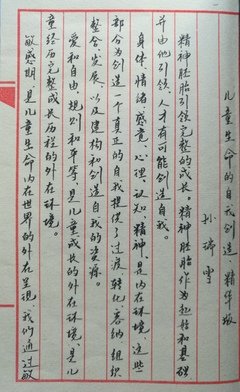 儿童生命的自我创造 精华版
孙瑞雪
精神胚胎引领完整的成长。精神胚胎作为起始和基础
并由他引领人才有可能创造自我。
身体、情绪、感觉、心理、认知、精神,是内在环境,这些
部分为创造一个真正的自我提供了过度、转化、容纳、组织
整合、发展、以及建构和创造自我的资源。
爱和自由、规则和平等,是儿童成长的外在环境,是儿
童经历完整成长历程的外在环境。
敏感期,是儿童生命内在世界的外在呈现,我们通过敏